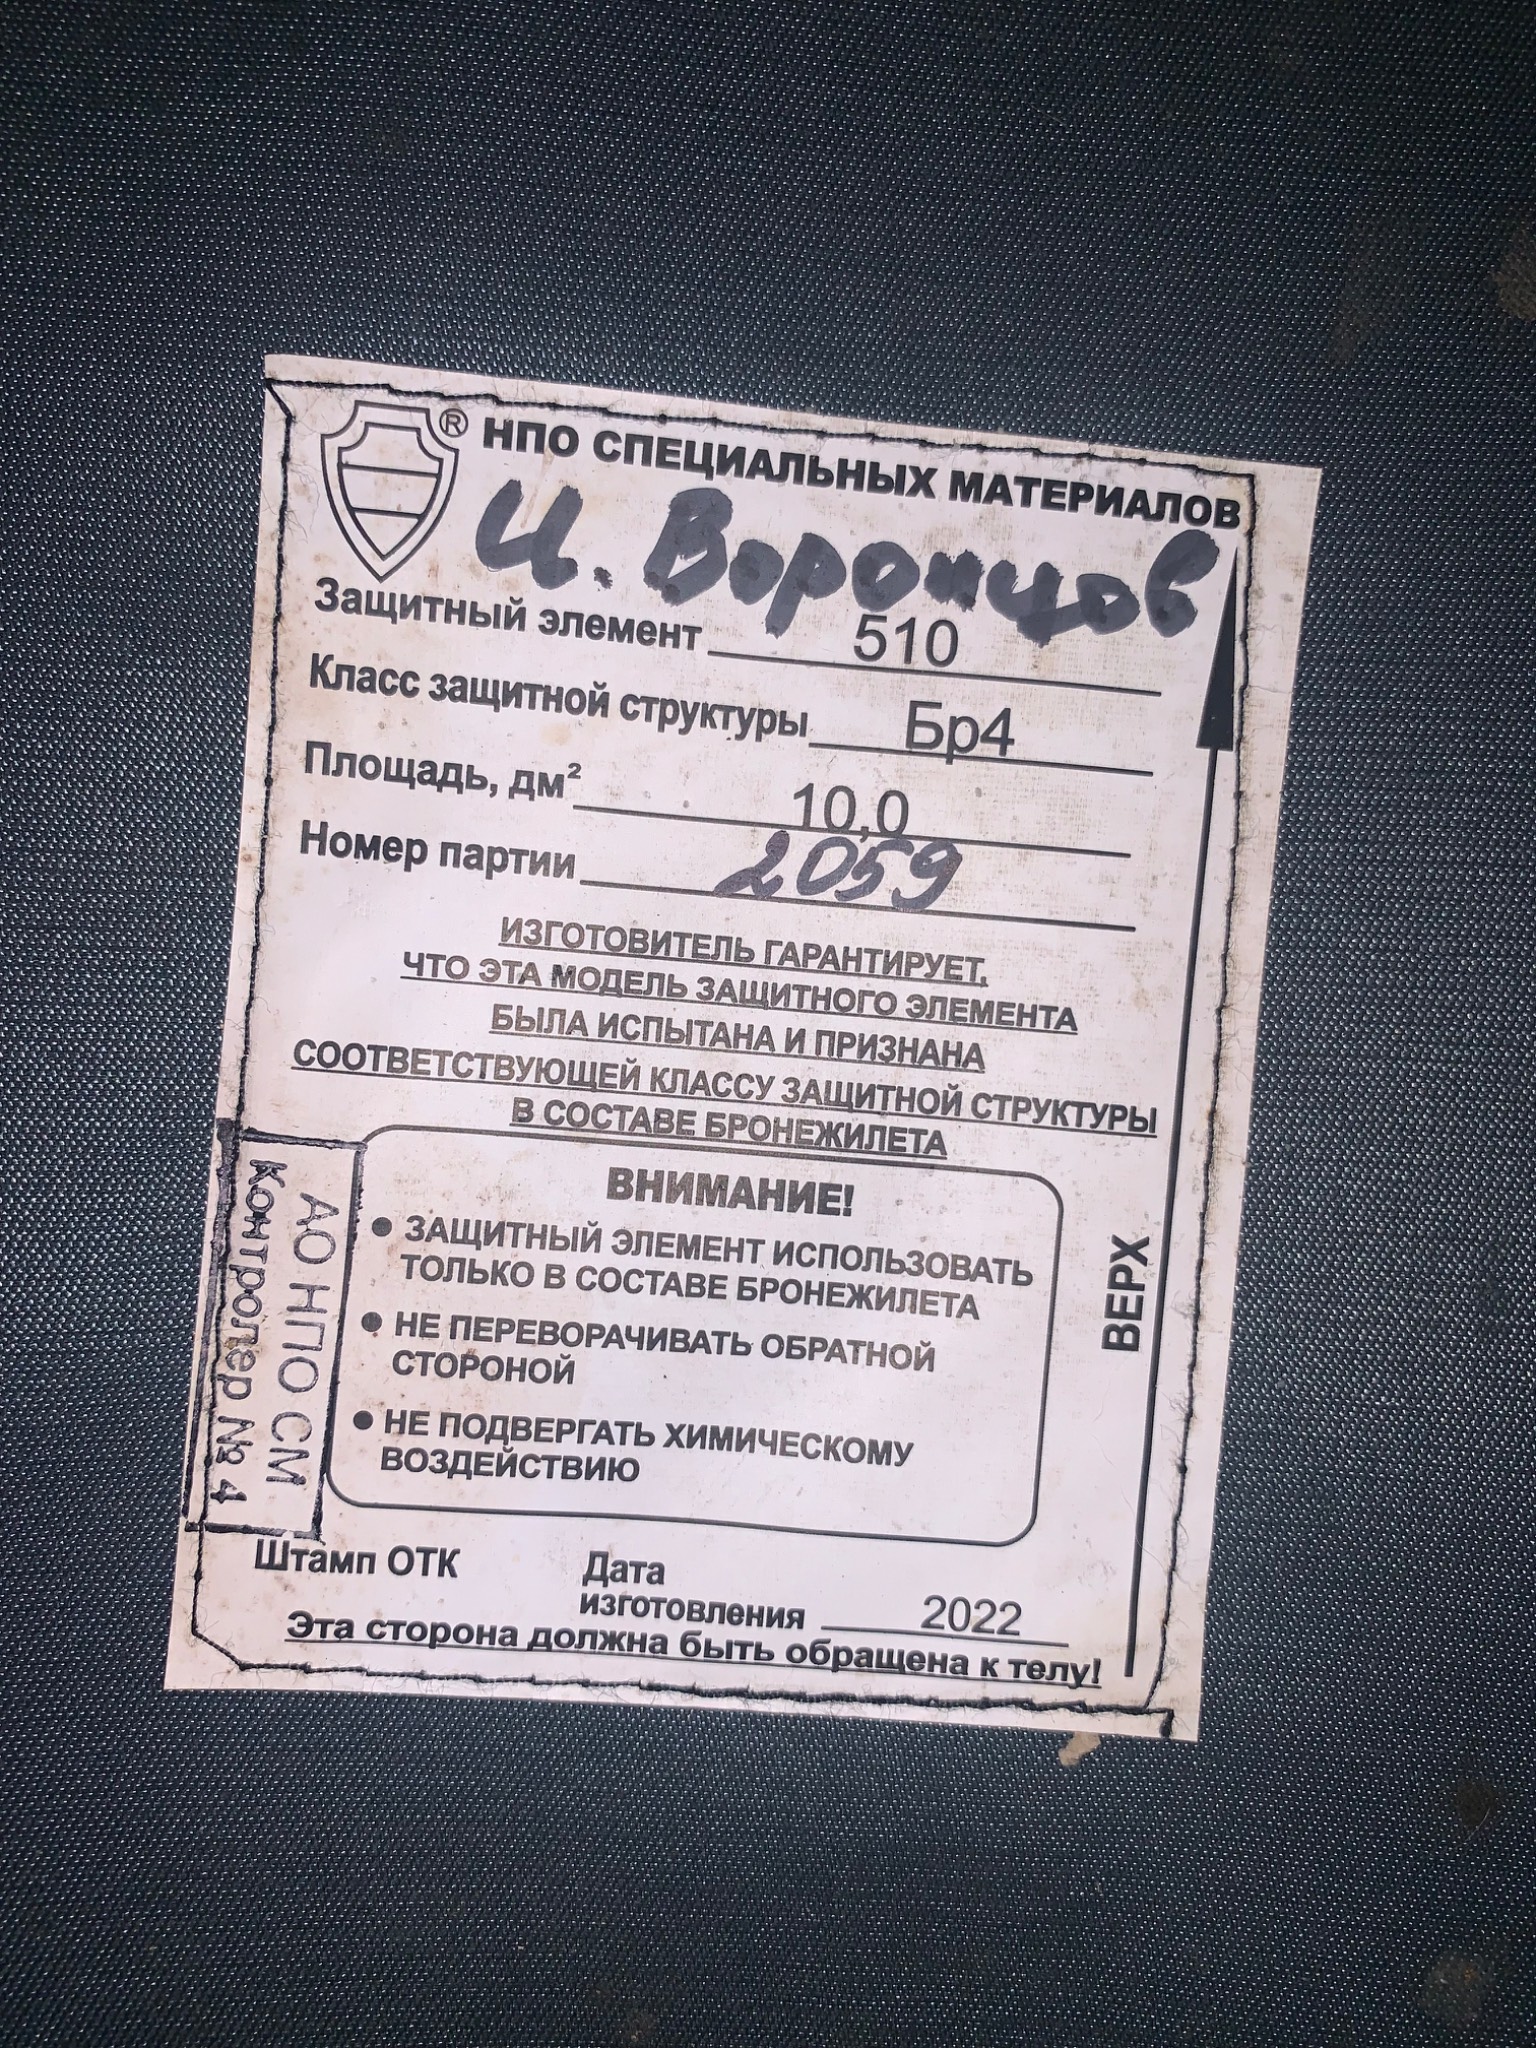 ® НПО СПЕЦИАЛЬНЫХ МАТЕРИАЛОВ
И. Воронцов
Защитный элемент 510
Класс защитной структуры Бр4
Площадь, дм² 10,0
Номер партии 2059
ИЗГОТОВИТЕЛЬ ГАРАНТИРУЕТ,
ЧТО ЭТА МОДЕЛЬ ЗАЩИТНОГО ЭЛЕМЕНТА
БЫЛА ИСПЫТАНА И ПРИЗНАНА
СООТВЕТСТВУЮЩЕЙ КЛАССУ ЗАЩИТНОЙ СТРУКТУРЫ
В СОСТАВЕ БРОНЕЖИЛЕТА
ВНИМАНИЕ!
● ЗАЩИТНЫЙ ЭЛЕМЕНТ ИСПОЛЬЗОВАТЬ
ТОЛЬКО В СОСТАВЕ БРОНЕЖИЛЕТА
● НЕ ПЕРЕВОРАЧИВАТЬ ОБРАТНОЙ
СТОРОНОЙ
● НЕ ПОДВЕРГАТЬ ХИМИЧЕСКОМУ
ВОЗДЕЙСТВИЮ
ВЕРХ
АО НПО СМ
Контролер № 4
Штамп ОТК
Дата
изготовления 2022
Эта сторона должна быть обращена к телу!